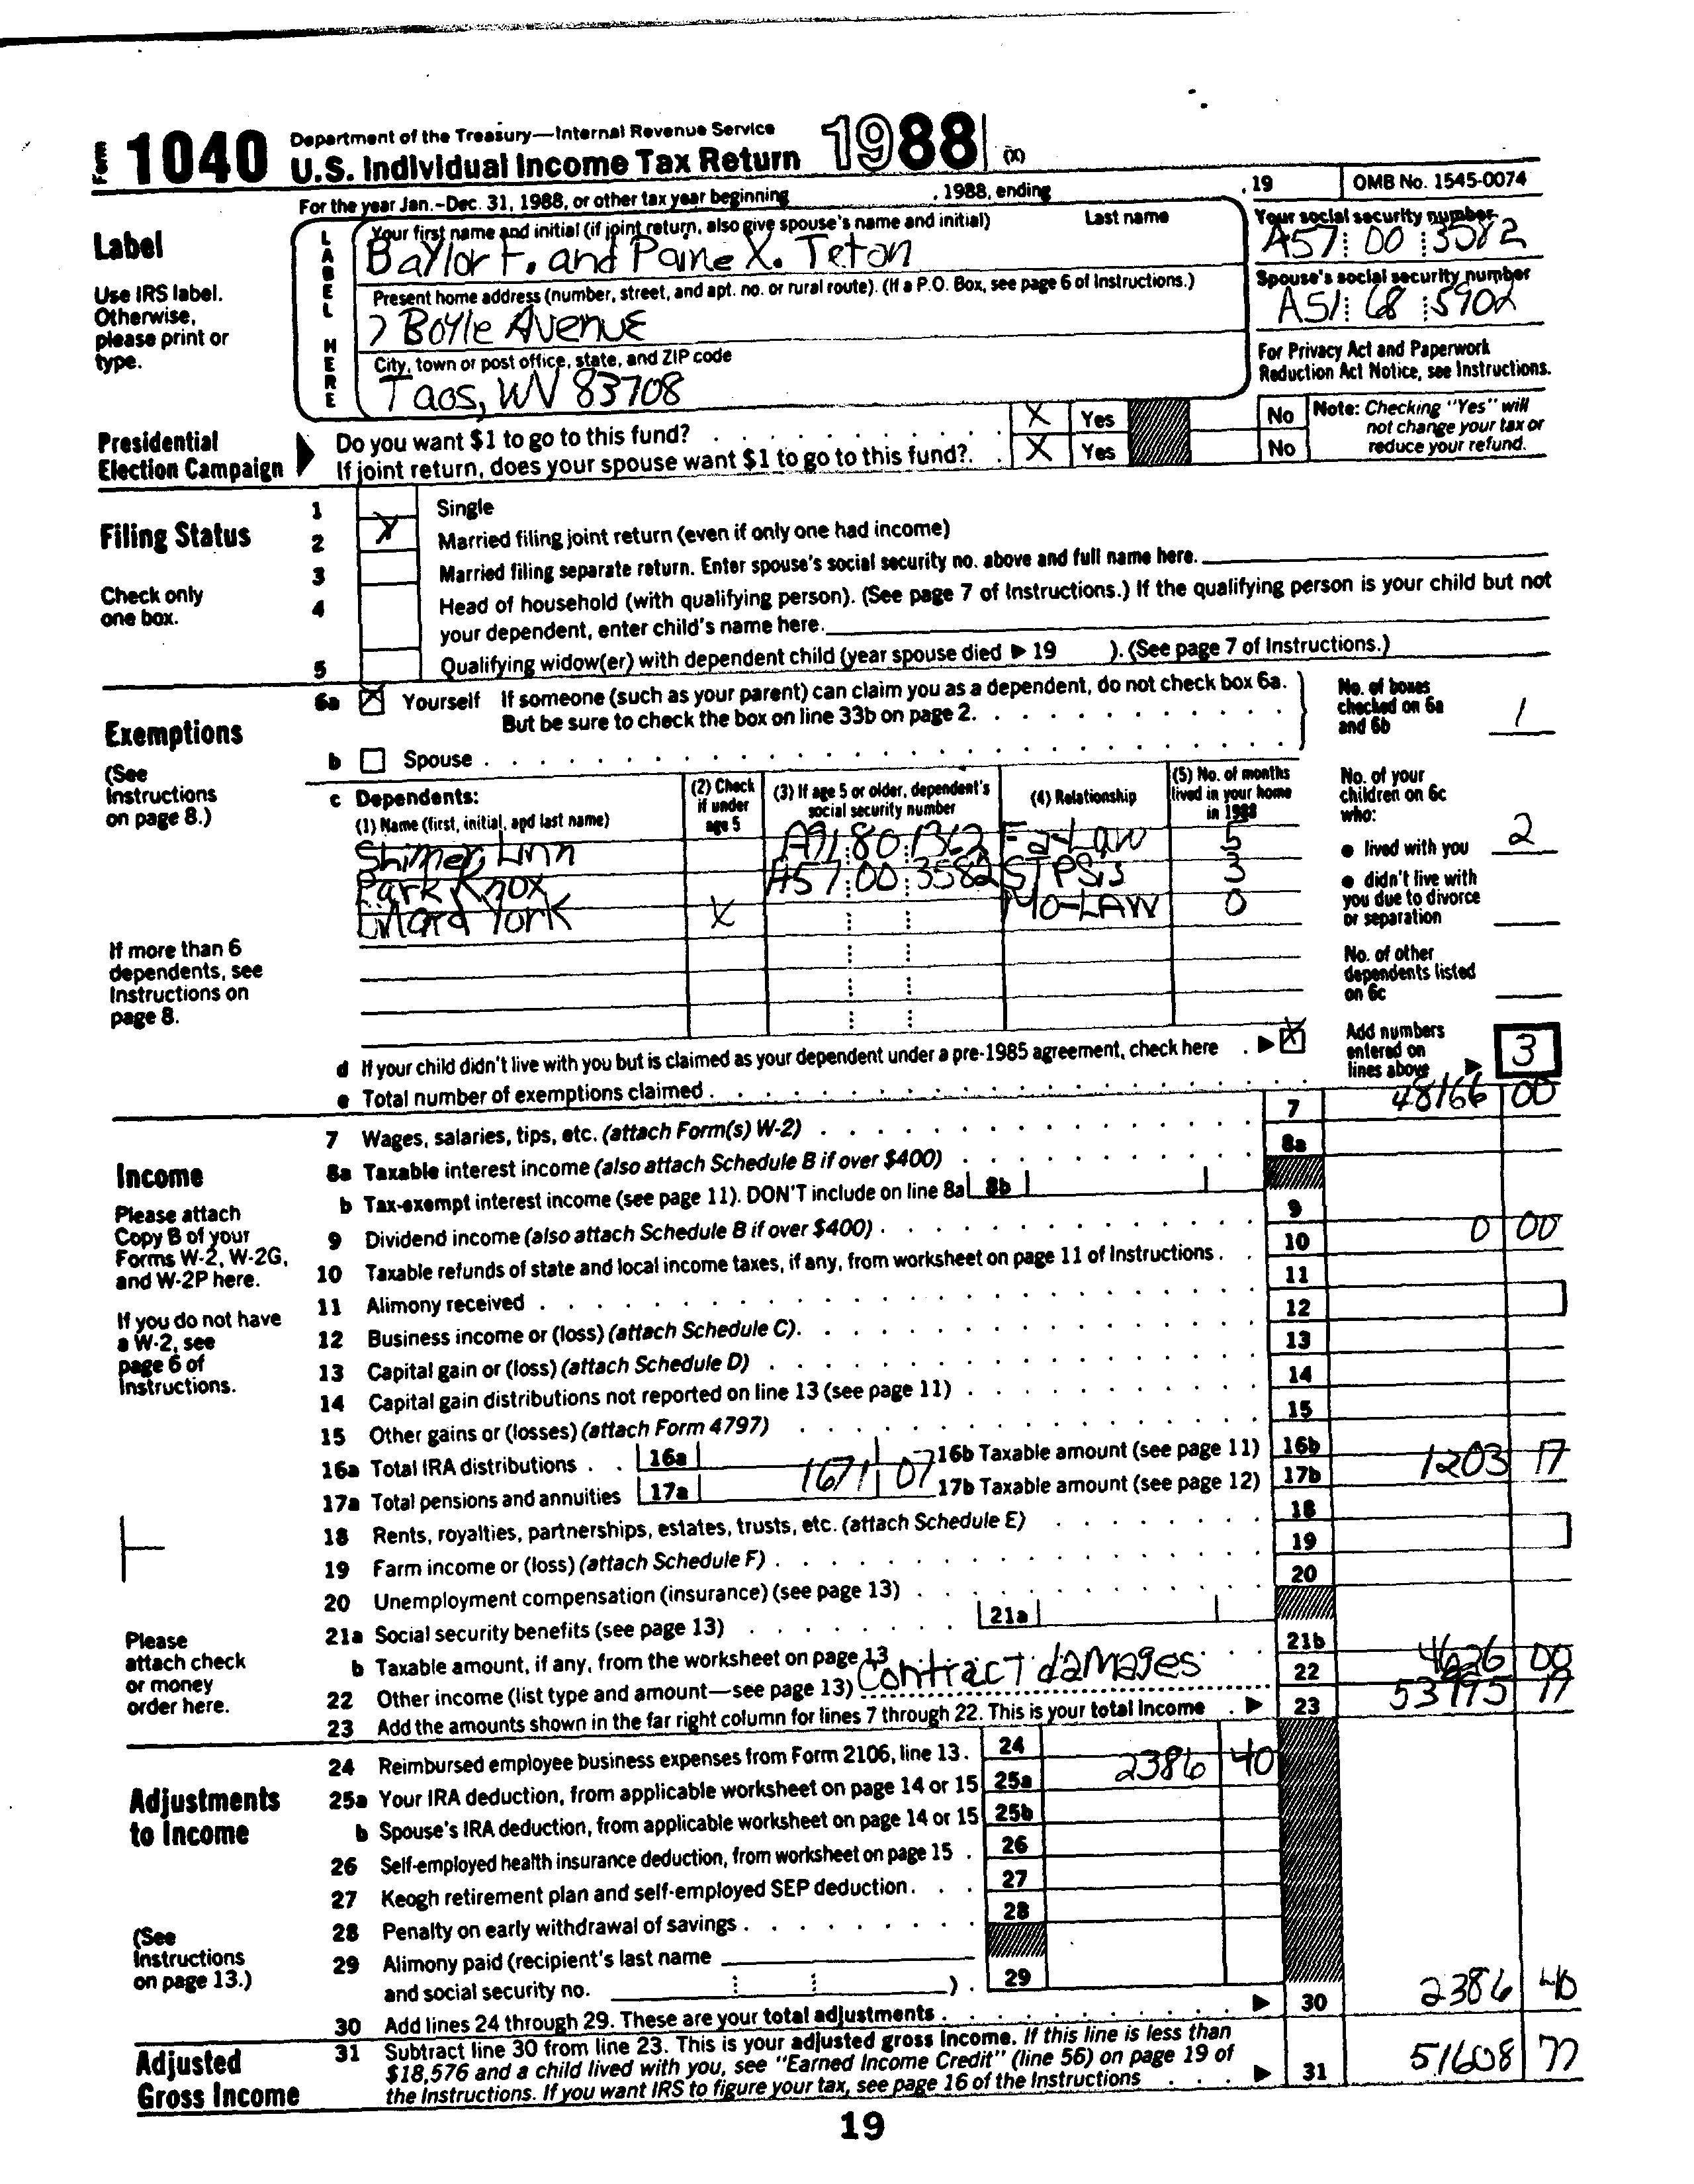 Form 1040 Department of the Treasury—Internal Revenue Service
U.S. Individual Income Tax Return 1988 (X)
For the year Jan.–Dec. 31, 1988, or other tax year beginning , 1988, ending , 19 OMB No. 1545-0074
Label
Use IRS label.
Otherwise,
please print or
type.
LABEL HERE
Your first name and initial (if joint return, also give spouse's name and initial) Last name
Baylor F. and Paine X. Teton
Your social security number
A57 00 3582
Present home address (number, street, and apt. no. or rural route). (If a P.O. Box, see page 6 of Instructions.)
7 Boyle Avenue
Spouse's social security number
A51 68 5902
City, town or post office, state, and ZIP code
Taos, WV 83708
For Privacy Act and Paperwork
Reduction Act Notice, see Instructions.
Presidential
Election Campaign
Do you want $1 to go to this fund? X Yes No
If joint return, does your spouse want $1 to go to this fund?. X Yes No
Note: Checking "Yes" will
not change your tax or
reduce your refund.
Filing Status
Check only
one box.
1 Single
2 X Married filing joint return (even if only one had income)
3 Married filing separate return. Enter spouse's social security no. above and full name here.
4 Head of household (with qualifying person). (See page 7 of Instructions.) If the qualifying person is your child but not
your dependent, enter child's name here.
5 Qualifying widow(er) with dependent child (year spouse died ▶ 19 ). (See page 7 of Instructions.)
Exemptions
(See
Instructions
on page 8.)
6a X Yourself If someone (such as your parent) can claim you as a dependent, do not check box 6a.
But be sure to check the box on line 33b on page 2.
b Spouse
No. of boxes
checked on 6a
and 6b 1
c Dependents:
(1) Name (first, initial, and last name)
(2) Check
if under
age 5
(3) If age 5 or older, dependent's
social security number
(4) Relationship
(5) No. of months
lived in your home
in 1988
Shimer, Linn A91 80 1362 Fa-Law 5
Park Knox A57 00 3582 STPSis 3
York X Mo-LAW 0
If more than 6
dependents, see
Instructions on
page 8.
No. of your
children on 6c
who:
● lived with you 2
● didn't live with
you due to divorce
or separation
No. of other
dependents listed
on 6c
d If your child didn't live with you but is claimed as your dependent under a pre-1985 agreement, check here . ▶ X
e Total number of exemptions claimed
Add numbers
entered on
lines above ▶ 3
Income
Please attach
Copy B of your
Forms W-2, W-2G,
and W-2P here.
If you do not have
a W-2, see
page 6 of
Instructions.
Please
attach check
or money
order here.
7 Wages, salaries, tips, etc. (attach Form(s) W-2) 7 48166 00
8a Taxable interest income (also attach Schedule B if over $400) 8a
b Tax-exempt interest income (see page 11). DON'T include on line 8a 8b
9 Dividend income (also attach Schedule B if over $400) 9
10 Taxable refunds of state and local income taxes, if any, from worksheet on page 11 of Instructions 10 0 00
11 Alimony received 11
12 Business income or (loss) (attach Schedule C). 12
13 Capital gain or (loss) (attach Schedule D) 13
14 Capital gain distributions not reported on line 13 (see page 11) 14
15 Other gains or (losses) (attach Form 4797) 15
16a Total IRA distributions 16a 16b Taxable amount (see page 11) 16b
17a Total pensions and annuities 17a 1671 07 17b Taxable amount (see page 12) 17b 1203 17
18 Rents, royalties, partnerships, estates, trusts, etc. (attach Schedule E) 18
19 Farm income or (loss) (attach Schedule F) 19
20 Unemployment compensation (insurance) (see page 13) 20
21a Social security benefits (see page 13) 21a
b Taxable amount, if any, from the worksheet on page 13 21b
22 Other income (list type and amount—see page 13) Contract damages 22 4626 00
23 Add the amounts shown in the far right column for lines 7 through 22. This is your total income ▶ 23 53995 17
Adjustments
to Income
(See
Instructions
on page 13.)
24 Reimbursed employee business expenses from Form 2106, line 13. 24
25a Your IRA deduction, from applicable worksheet on page 14 or 15 25a 2386 40
b Spouse's IRA deduction, from applicable worksheet on page 14 or 15 25b
26 Self-employed health insurance deduction, from worksheet on page 15 26
27 Keogh retirement plan and self-employed SEP deduction 27
28 Penalty on early withdrawal of savings 28
29 Alimony paid (recipient's last name
and social security no. ) 29
30 Add lines 24 through 29. These are your total adjustments ▶ 30 2386 40
Adjusted
Gross Income
31 Subtract line 30 from line 23. This is your adjusted gross income. If this line is less than
$18,576 and a child lived with you, see "Earned Income Credit" (line 56) on page 19 of
the Instructions. If you want IRS to figure your tax, see page 16 of the Instructions ▶ 31 51608 77
19